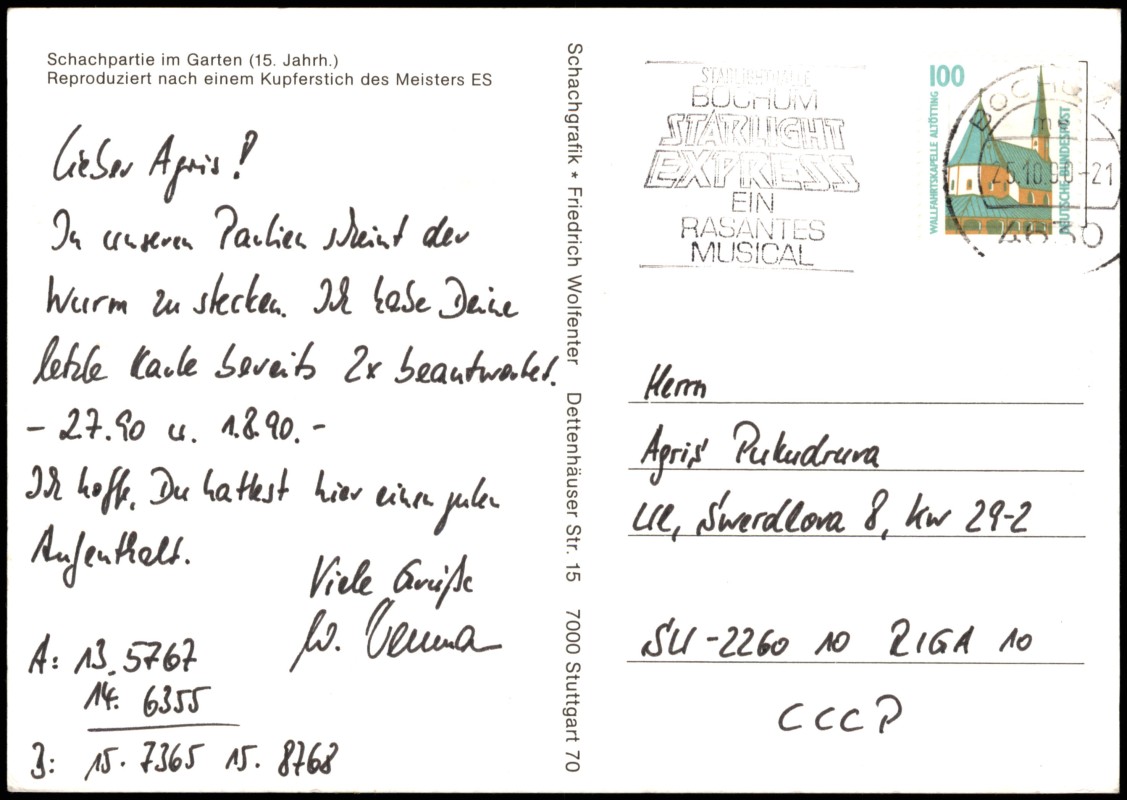 Schachpartie im Garten (15. Jahrh.)
Reproduziert nach einem Kupferstich des Meisters ES
Lieber Agris!
In unseren Partien scheint der
Wurm zu stecken. Ich habe Deine
letzte Karte bereits 2x beantwortet.
- 2.7.90 u. 1.8.90. -
Ich hoffe, Du hattest hier einen guten
Aufenthalt.
Viele Grüße
W.
A: 13. 5767
14. 6355
B: 15. 7365 15. 8768
Schachgrafik * Friedrich Wolfenter Dettenhäuser Str. 15 7000 Stuttgart 70
STARLIGHTHALLE
BOCHUM
STARLIGHT
EXPRESS
EIN
RASANTES
MUSICAL
100
WALLFAHRTSKAPELLE ALTÖTTING
DEUTSCHE BUNDESPOST
BOCHUM 1
mc
25.10.90-21
4630
Herrn
Agris Pukudruva
Ul, Swerdlova 8, kw 29-2
SU-2260 10 RIGA 10
CCCP